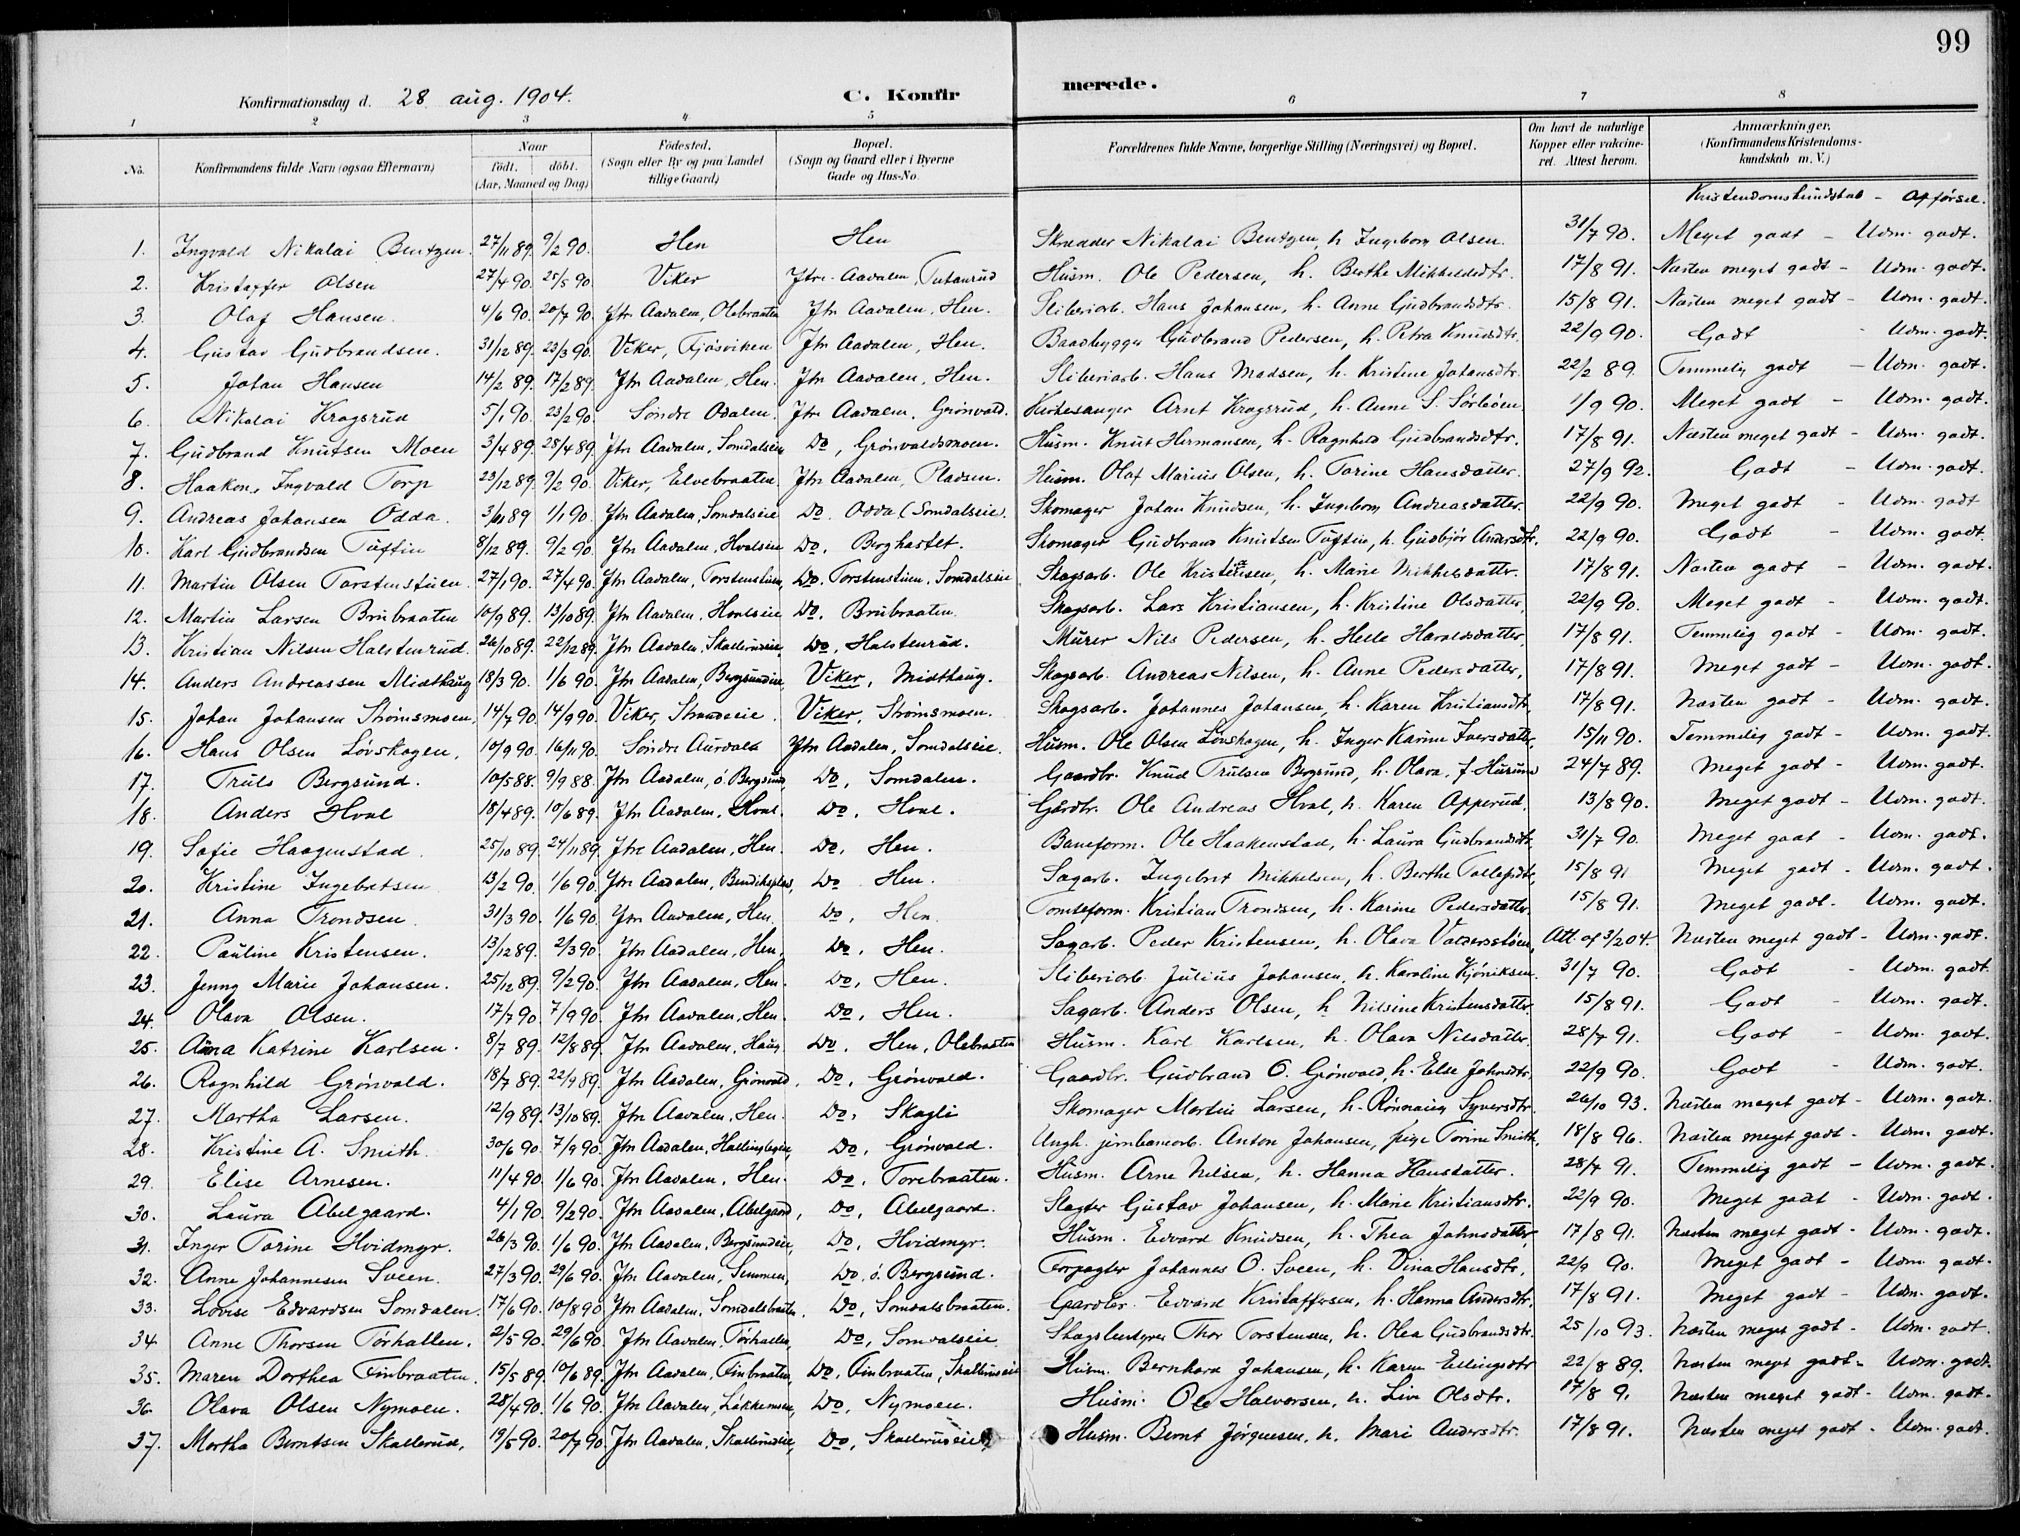 99
Konfirmationsdag d. 28 aug. 1904. C. Konfirmerede.
1 2 3 4 5 6 7 8
No. Konfirmandens fulde Navn (ogsaa Efternavn) Naar født. døbt. (Aar, Maaned og Dag) Fødested. (Sogn eller By og paa Landet tillige Gaard) Bopæl. (Sogn og Gaard eller i Byerne Gade og Hus-No. Forældrenes fulde Navne, borgerlige Stilling (Næringsvei) og Bopæl. Om havt de naturlige Kopper eller vakcineret. Attest herom. Anmærkninger. (Konfirmandens Kristendomskundskab m. V.)
Kristendomskundskab - Opførsel.
1. Ingvald Nikolai Bentzen. 27/11 89. 9/2 90. Hen Hen Skrædder Nikolai Bentzen, h. Ingeborg Olsen. 31/7 90. Meget godt - Udm. godt.
2. Kristoffer Olsen 27/4 90. 25/5 90. Viker Ytre Aadalen, Tutanrud Husm. Ole Pedersen, h. Berthe Mikkelsdtr. 17/8 91. Næsten meget godt - Udm. godt.
3. Olaf Hansen. 4/6 90. 20/7 90. Ytr Aadalen, Olebraaten Ytr Aadalen, Hen. Sliberiarb. Hans Johansen, h. Anne Gudbrandsdtr. 15/8 91. Næsten meget godt - Udm. godt.
4. Gustav Gudbrandsen. 31/12 89. 23/3 90. Viker, Fjøsviken Ytr Aadalen, Hen. Baadbygger Gudbrand Pedersen, h. Petra Knudsdtr. 22/9 90. Godt - Udm. godt.
5. Johan Hansen 14/2 89. 17/2 89. Ytr Aadalen, Hen. Ytr Aadalen, Hen. Sliberiarb. Hans Madsen, h. Kristine Johansdtr. 22/2 89. Temmelig godt - Udm. godt.
6. Nikolai Kragsrud 5/1 90. 23/2 90. Søndre Odalen. Ytre Aadalen, Grønvold. Kirkesanger Arnt Kragsrud, h. Anne S. 1/9 90. Meget godt - Udm. godt.
7. Gudbrand Knutsen Moen 3/4 89. 28/4 89. Ytr Aadalen, Somdalseie Do, Grønvoldsmoen. Husm. Knut Hermansen, h. Ragnhild Gudbrandsdtr. 17/8 91. Næsten meget godt - Udm. godt.
8. Haakon Ingvald Torp 23/12 89. 9/2 90. Viker, Elvebraaten Ytr Aadalen, Pladsen. Husm. Olaf Marius Olsen, h. Torine Hansdatter. 27/9 92. Godt - Udm. godt.
9. Andreas Johansen Odda. 3/11 89 1/1 90. Ytr Aadalen, Somdalseie Do. Odda (Somdalseie). Skomager Johan Knudsen, h. Ingeborg Andreasdatter. 22/9 90. Meget godt - Udm. godt
10. Karl Gudbrandsen Tuftin 8/12 89. 9/2 90. Ytr Aadalen, Hvalseie Do. Berghaslet. Skomager Gudbrand Knutsen Tuftin, h. Gudbjør Andersdtr. 22/9 90. Godt - Udm. godt.
11. Martin Olsen Torstenstuen. 27/1 90. 27/4 90. Ytr Aadalen, Torstenstuen, Do. Torstenstuen, Somdalseie Skogsarb. Ole Kristensen, h. Marie Mikkelsdatter. 17/8 91. Næsten godt - Udm. godt.
12. Martin Larsen Brubraaten 10/9 89. 13/10 89. Ytr Aadalen, Hvalseie Do. Brubraaten. Skogsarb. Lars Kristiansen, h. Kristine Olsdatter, 22/9 90. Meget godt - Udm. godt.
13. Kristian Nilsen Halstenrud. 26/10 89. 22/12 89. Ytr Aadalen, Skallerudeie, Do, Halstenrud. Murer Nils Pedersen, h. Helle Haraldsdatter, 17/8 91. Temmelig godt - Udm. godt.
14. Anders Andreassen Midthaug 18/3 90. 1/6 90. Ytr Aadalen, Bergsundeie Viker, Midthaug. Skogsarb. Andreas Nilsen, h. Anne Pedersdatter, 17/8 91. Meget godt - Udm. godt.
15. Johan Johansen Strømsmoen, 14/7 90. 14/9 90. Viker, Strandeie. Viker, Strømsmoen. Skogsarb. Johannes Johansen, h. Karen Kristiansdtr. 17/8 91. Næsten godt - Udm. godt.
16. Hans Olsen Løvskogen, 10/9 90. 16/11 90. Søndre Aurdal Ytr Aadalen, Somdalseie. Husm. Ole Olsen Løvskogen, h. Inger Karine Iversdatter, 15/11 90. Temmelig godt - Udm. godt.
17. Truls Bergsund. 10/5 88. 9/9 88. Ytr Aadalen, ø. Bergsund, Do, Somdalen. Gaardbr. Knud Trulsen Bergsund, h. Olava, f. Hurum 24/7 89. Meget godt - Udm. godt.
18. Anders Hval 18/4 89. 10/6 89. Ytr Aadalen, Hval. Do, Hval. Gardbr. Ole Andreas Hval, h. Karen Opperud. 13/8 90. Meget godt - Udm. godt.
19. Sofie Haagenstad. 25/10 89. 24/11 89. Ytre Aadalen, Hen. Do, Hen. Baneform. Ole Haakenstad, h. Laura Gudbrandsdtr. 31/7 90. Meget godt - Udm. godt.
20. Kristine Ingebretsen 13/2 90. 1/6 90. Ytre Aadalen, Bendiksplds, Do Hen. Sagarb. Ingebret Mikkelsen, h. Berthe Tollefsdtr, 15/8 91 Meget godt - Udm. godt.
21. Anna Trondsen 31/3 90. 1/6 90. Ytr Aadalen, Hen. Do, Hen. Tomteform. Kristian Trondsen, h. Karine Pedersdatter. 15/8 91. Meget godt - Udm. godt.
22. Pauline Kristensen. 13/12 89. 2/3 90. Ytr Aadalen, Hen, Do, Hen. Sagarb. Peder Kristensen, h. Olava Valdersstøen, Att. af 3/2 04. Næsten meget godt - Udm. godt.
23. Jenny Marie Johansen. 25/12 89. 9/2 90. Ytr Aadalen, Hen. Do, Hen. Sliberiarb. Julius Johansen, h. Karoline Kjøniksen. 31/7 90. Godt - Udm. godt.
24. Olava Olsen. 17/7 90. 7/9 90. Ytr Aadalen, Hen. Do, Hen. Sagarb. Anders Olsen, h. Nilsine Kristensdatter. 15/8 91. Godt - Udm. godt.
25. Anna Katrine Karlsen. 8/7 89. 12/8 89. Ytr Aadalen, Haug Do. Hen, Olebraaten Husm. Karl Karlsen, h. Olava Nilsdatter. 28/7 91. Godt - Udm. godt.
26. Ragnhild Grønvold. 18/7 89. 22/9 89. Ytr Aadalen, Grønvold, Do, Grønvold. Gaardbr. Gudbrand O. Grønvold, h. Else Johnsdtr, 22/9 90. Godt - Udm. godt.
27. Martha Larsen. 12/9 89. 13/10 89. Ytr Aadalen, Hen. Do, Skagli Skomager Martin Larsen, h. Rønnaug Syversdtr. 26/10 93. Næsten meget godt - Udm. godt.
28. Kristine A. Smith. 30/6 90. 7/9 90. Ytr Aadalen, Do, Grønvold. Ungk. jernbanearb. Anton Johansen, pige Torine Smith, 18/8 96. Næsten meget godt - Udm. godt.
29. Elise Arnesen. 11/4 90. 1/6 90. Ytr Aadalen, Hen. Do. Torebraaten. Husm. Arne Nilsen, h. Hanna Hansdatter. 28/7 91. Temmelig godt - Udm. godt.
30. Laura Abelgaard. 4/1 90. 9/2 90. Ytr Aadalen, Abelgaard, Do, Abelgaard. Slagter Gustav Johansen, h. Marie Kristiansdtr. 22/9 90. Meget godt - Udm. godt.
31. Inger Torine Hvidmyr. 26/3 90. 1/6 90. Ytr Aadalen, Bergsundeie, Do, Hvidmyr. Husm. Edvard Knudsen, h. Thea Johnsdatter, 17/8 91. Næsten meget godt - Udm. godt.
32. Anne Johannesen Sveen. 27/3 90. 29/6 90. Ytr Aadalen, Semmen, Do, ø. Bergsund. Forpagter Johannes O. Sveen, h. Dina Hansdtr, 22/9 90. Meget godt - Udm. godt.
33. Lovise Edvardsen Somdalen. 17/6 90. 10/8 90. Ytr Aadalen, Somdalsbraaten. Do, Somdalsbraaten. Gardbr. Edvard Kristoffersen, h. Hanna Andersdtr. 17/8 91. Meget godt - Udm. godt.
34. Anne Thorsen Tørhallen. 2/5 90. 29/6 90. Ytr Aadalen, Tørhallen, Do, Somdalseie Skogsbestyrer Thor Torstensen, h. Olea Gudbrandsdtr. 25/10 93. Næsten meget godt - Udm. godt.
35. Maren Dorthea Finbraaten. 15/5 89. 10/6 89. Ytr Aadalen, Finbraaten, Do, Finbraaten, Skallerudeie Husm. Bernhard Johansen, h. Karen Ellingsdtr 22/8 89. Næsten meget godt - Udm. godt.
36. Olava Olsen Nymoen. 28/4 90. 1/6 90. Ytr Aadalen, Løkkemoen, Do, Nymoen. Husm. Ole Halvorsen, h. Live Olsdtr. 17/8 91 Næsten meget godt - Udm. godt.
37. Martha Berntsen Skallerud, 19/5 90. 20/7 90. Ytr Aadalen, Skallerudeie, Do, Skallerudeie Husm. Bernt Jørgensen, h. Mari Andersdtr. 17/8 91. Næsten meget godt - Udm. godt.